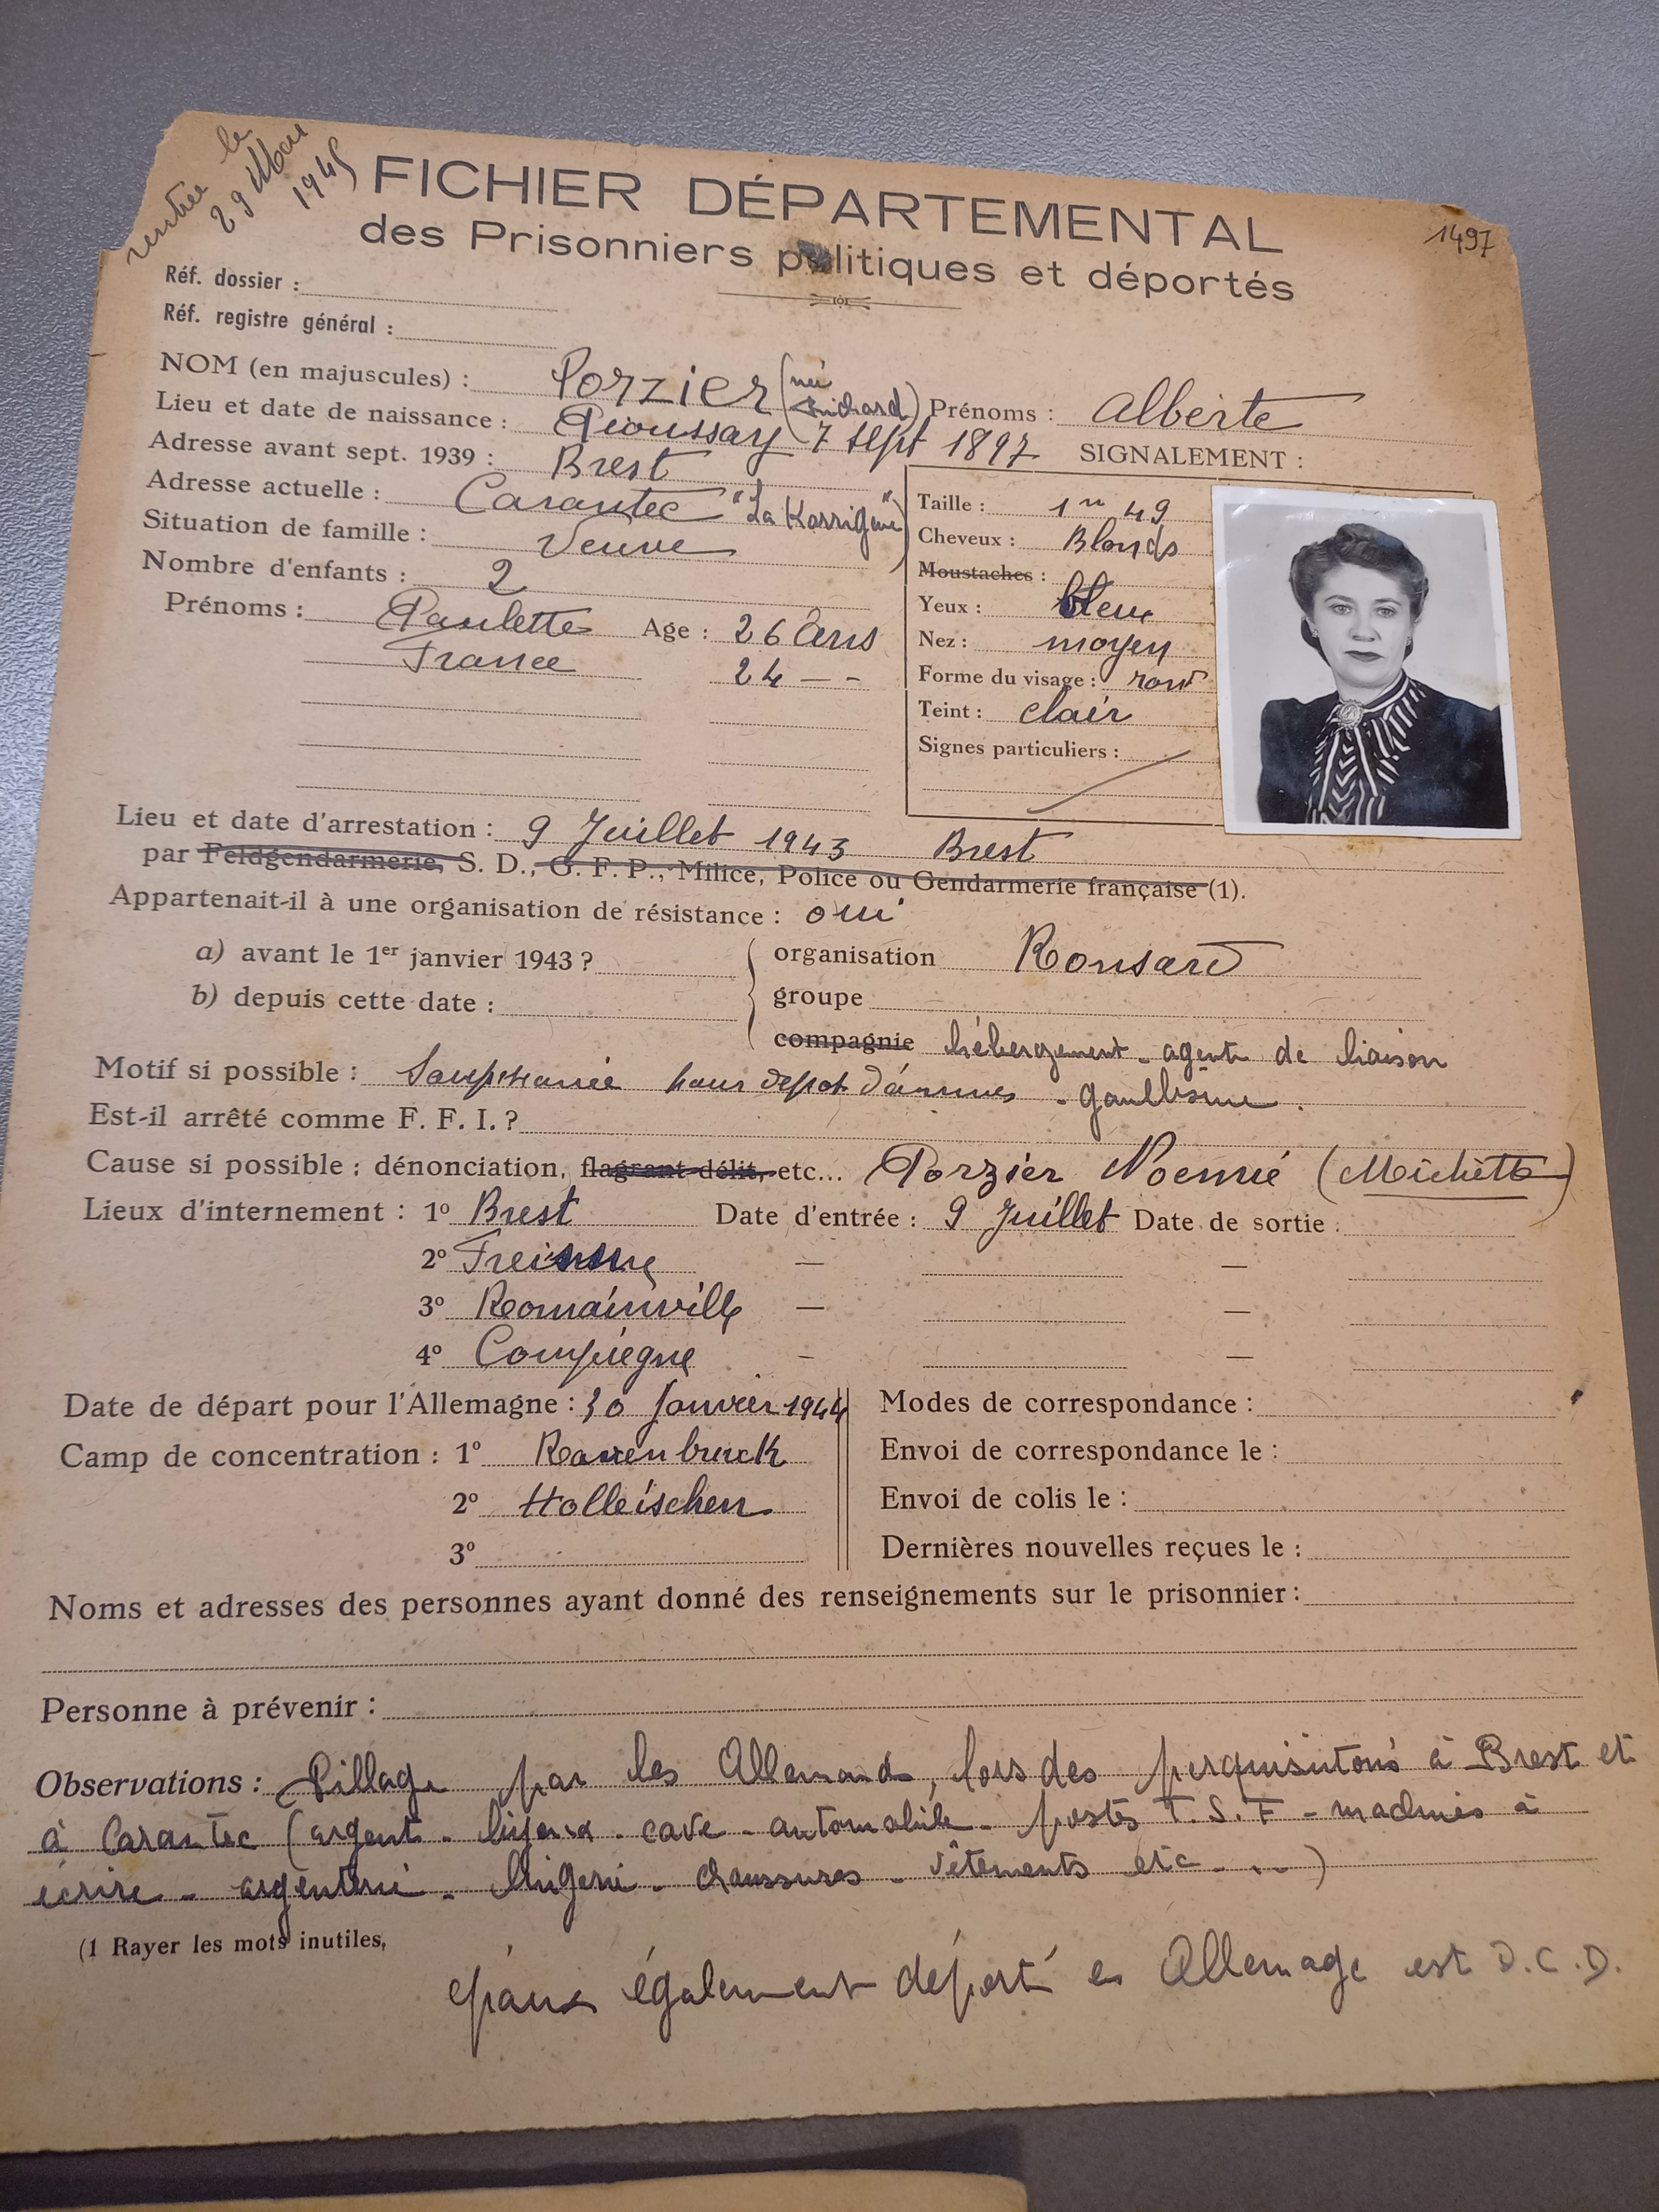 rentrée le
29 Mai
1945
1497
FICHIER DÉPARTEMENTAL
des Prisonniers politiques et déportés
Réf. dossier :
Réf. registre général :
NOM (en majuscules) : Porzier (née Prénoms : Alberte
Lieu et date de naissance : Pioussay 7 Sept 1897
Adresse avant sept. 1939 : Brest
Adresse actuelle : Carantec "La Korrigane"
Situation de famille : Veuve
Nombre d'enfants : 2
Prénoms : Paulette Age : 26 ans
France 24 – –
SIGNALEMENT :
Taille : 1m 49
Cheveux : Blonds
Moustaches :
Yeux : bleu
Nez : moyen
Forme du visage : rond
Teint : clair
Signes particuliers :
Lieu et date d'arrestation : 9 Juillet 1943 Brest
par Feldgendarmerie, S. D., G. F. P., Milice, Police ou Gendarmerie française (1).
Appartenait-il à une organisation de résistance : oui
a) avant le 1er janvier 1943 ? organisation Ronsard
b) depuis cette date : groupe
compagnie hébergement - agent de liaison
Motif si possible : pour depot d'armes - gaullisme.
Est-il arrêté comme F. F. I. ?
Cause si possible : dénonciation, flagrant délit, etc... Porzier Noemie (Michette)
Lieux d'internement : 1o Brest Date d'entrée : 9 Juillet Date de sortie :
2o — —
3o Romainville — —
4o Compiègne - —
Date de départ pour l'Allemagne : 30 Janvier 1944
Camp de concentration : 1o Ravenbruck
2o Holleischen
3o
Modes de correspondance :
Envoi de correspondance le :
Envoi de colis le :
Dernières nouvelles reçues le :
Noms et adresses des personnes ayant donné des renseignements sur le prisonnier :
Personne à prévenir :
Observations : Pillage par les Allemands, lors des perquisitions à Brest et
à Carantec (argent - bijoux - cave - automobile - postes T. S. F - machines à
écrire - argenterie - lingerie - chaussures - vêtements etc - ..)
(1 Rayer les mots inutiles,
époux également déporté en Allemage est D.C.D.